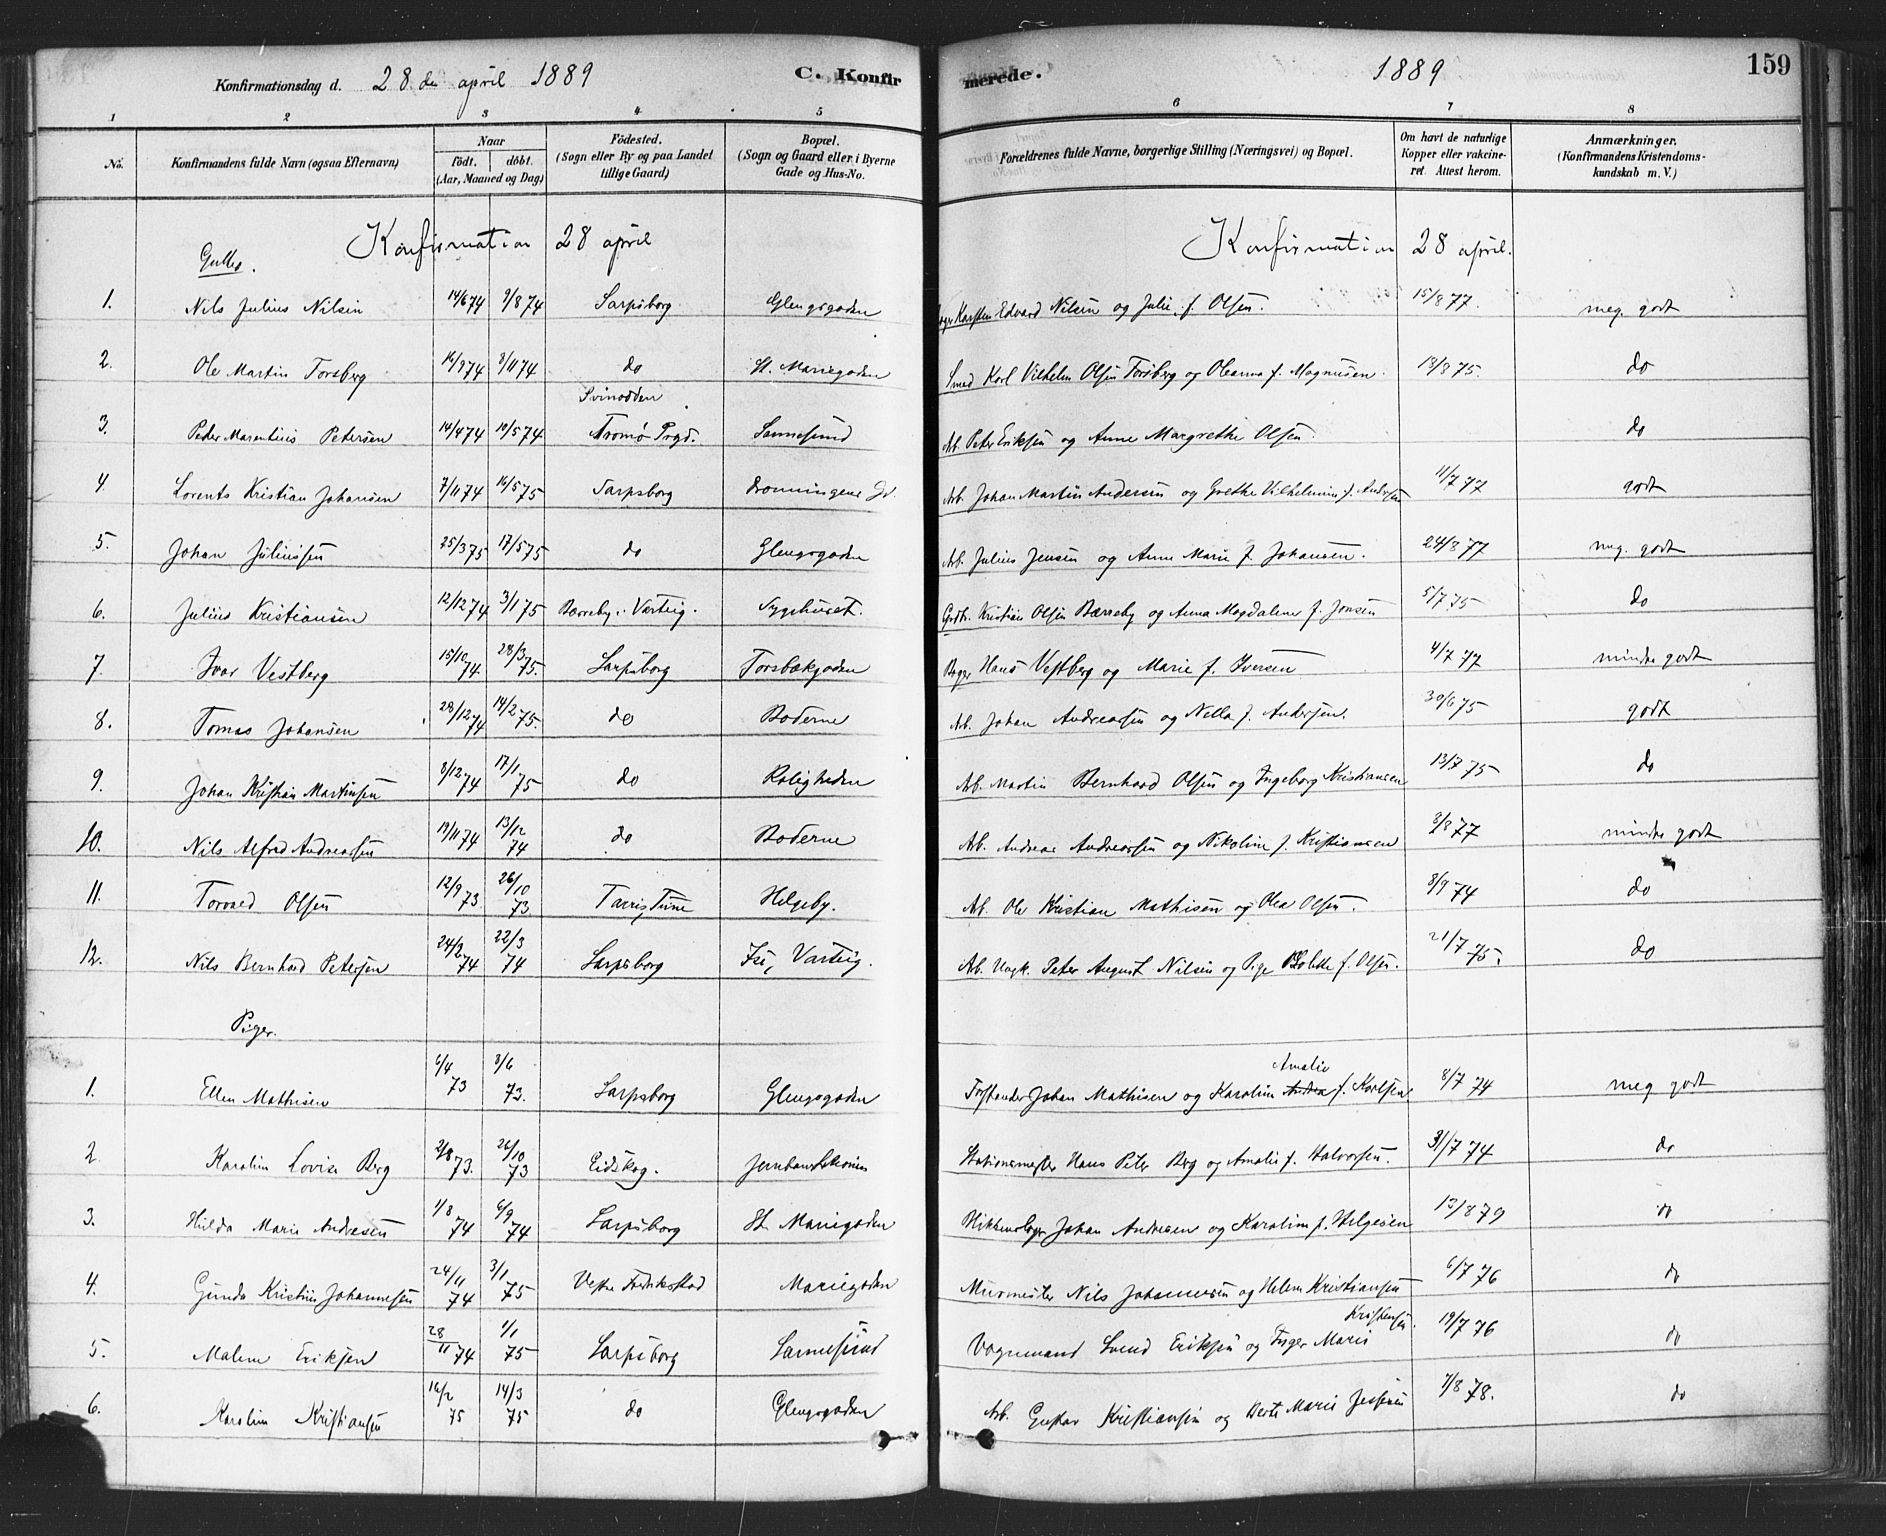 Konfirmationsdag d. 28 de april 1889 C. Konfirmerede. 1889 159
1 2 3 4 5 6 7 8
No. Konfirmandens fulde Navn (ogsaa Efternavn) Naar födt. döbt. (Aar, Maaned og Dag) Födested. (Sogn eller By og paa Landet tillige Gaard) Bopæl. (Sogn og Gaard eller i Byerne Gade og Hus-No. Forældrenes fulde Navne, borgerlige Stilling (Næringsvei) og Bopæl. Om havt de naturlige Kopper eller vakcineret. Attest herom. Anmærkninger. (Konfirmandens Kristendomskundskab m. V.)
Konfirmation 28 april Konfirmation 28 april.
Gutter.
1. Nils Julius Nilsen 14/6 74 9/8 74 Sarpsborg Glengsgaden Karsten Edvard Nilsen og Julie f. Olsen. 15/8 77. meg. godt
2. Ole Martin Forsberg 16/9 74 8/11 74 do St. Mariegaden Smed Karl Vilhelm Olsen Forsberg og Oleanna f. Magnusen. 13/8 75. do
3. Peder Marentius Petersen 14/4 74 10/5 74 Svinodden Tromø Prgd. Sannesund Arb. Peter Eriksen og Anne Margrethe Olsen. do
4. Lorents Kristian Johansen 7/11 74 16/5 75 Sarpsborg Dronningens Gd. Arb. Johan Martin Andersen og Grethe Vilhelmine f. Andersen 11/7 77 godt
5. Johan Juliussen 25/3 75 17/5 75 do Glengsgaden Arb. Julius Jensen og Anne Marie f. Johansen. 24/8 77 meg. godt
6. Julius Kristiansen 12/12 74 3/1 75 Bærreby i Varteig. Sygehuset. Grdb. Kristian Olsen Bærreby og Anna Magdalene f. Jonsen 5/7 75 do
7. Ivar Vestberg 15/10 74 28/3 75. Sarpsborg Torsbækgaden Bager Hans Vestberg og Marie f. Iversen 4/7 77 mindre godt
8. Tomas Johansen 28/12 74 14/2 75. do Boderne Arb. Johan Andreassen og Nella f. Andersen. 30/6 75 godt
9. Johan Kristian Martinsen 8/12 74 17/1 75 do Roligheden Arb. Martin Bernhard Olsen og Ingeborg Kristiansen 13/7 75 do
10. Nils Alfred Andreassen 19/11 74 13/12 74 do Boderne Arb. Andreas Andreassen og Nikoline f. Kristiansen 8/8 77 mindre godt
11. Torvald Olsen 12/9 73 26/10 73 Tune Helgeby. Ab. Ole Kristian Mathisen og Olea Olsen. 8/9 74 do
12. Nils Bernhard Petersen 24/2 74 22/3 74 Sarpsborg Varteig. Ab. Ungk. Peter August Nilsen og Pige f. Olsen. 21/7 75. do
Piger.
1. Ellen Mathisen 6/4 73 8/6 73. Sarpsborg Glengsgaden Forstander Johan Mathisen og Karoline Andrea Amalie f. Karlsen. 8/7 74 meg godt
2. Karoline Lovise Berg 2/8 73. 26/10 73 Eidskog. Jernbanestationen Stationsmester Hans Peter Berg og Amalie f. Halvorsen. 31/7 74 do
3. Hilda Marie Andresen 1/8 74 6/9 74 Sarpsborg St. Mariegaden Blikkenslager Johan Andresen og Karoline f. Helgesen 13/8 79 do
4. Gunda Kristine Johannesen 24/11 74 3/1 75 Vestre Fredrikstad Mariegaden Murmester Nils Johannesen og Helene Kristiansen 6/7 76 do
5. Malene Eriksen 28/11 74 1/1 75 Sarpsborg Sannesund Vognmand Svend Eriksen og Inger Marie Kristensen. 19/7 76 do
6. Karoline Kristiansen 16/2 75 14/3 75 do Glengsgaden Arb. Gustav Kristiansen og Berte Marie Jessen 7/8 78. do